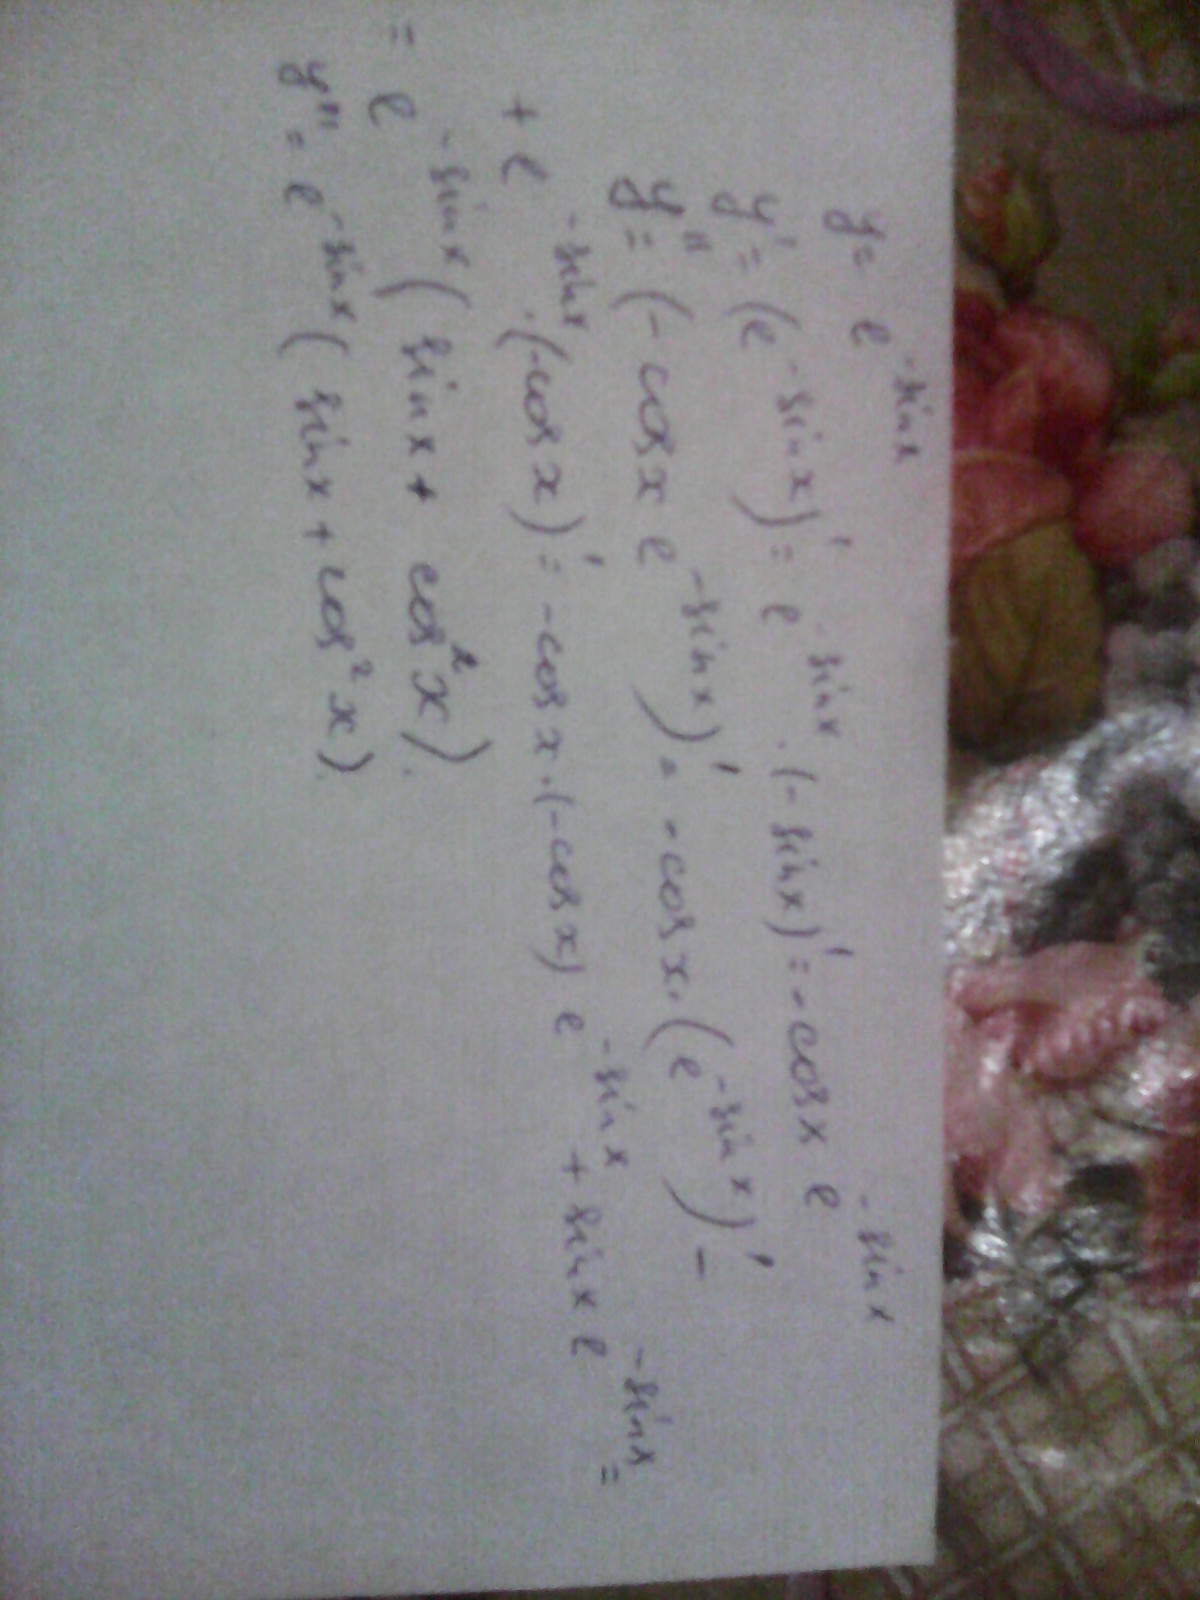 y = e^{-sin x}
y' = (e^{-sin x})' = e^{-sin x} · (-sin x)' = -cos x e^{-sin x}
y'' = (-cos x e^{-sin x})' = -cos x · (e^{-sin x})' -
+ e^{-sin x} · (-cos x)' = -cos x · (-cos x) e^{-sin x} + sin x e^{-sin x} =
= e^{-sin x} (sin x + cos² x).
y''' = e^{-sin x} (sin x + cos² x).